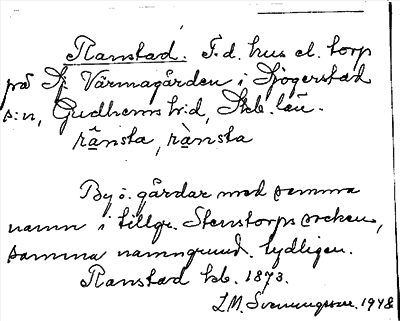 Ranstad. F.d. hus el. torp
på St. Värmagården i Sjogerstad
s:n, Gudhems h:d, Skb. län.
rånsta, rànsta
By o. gårdar med samma
namn i tillgr. Stenstorps socken,
samma namngrund tydligen.
Ranstad kb. 1873.
I.M. Svenungsson. 1948